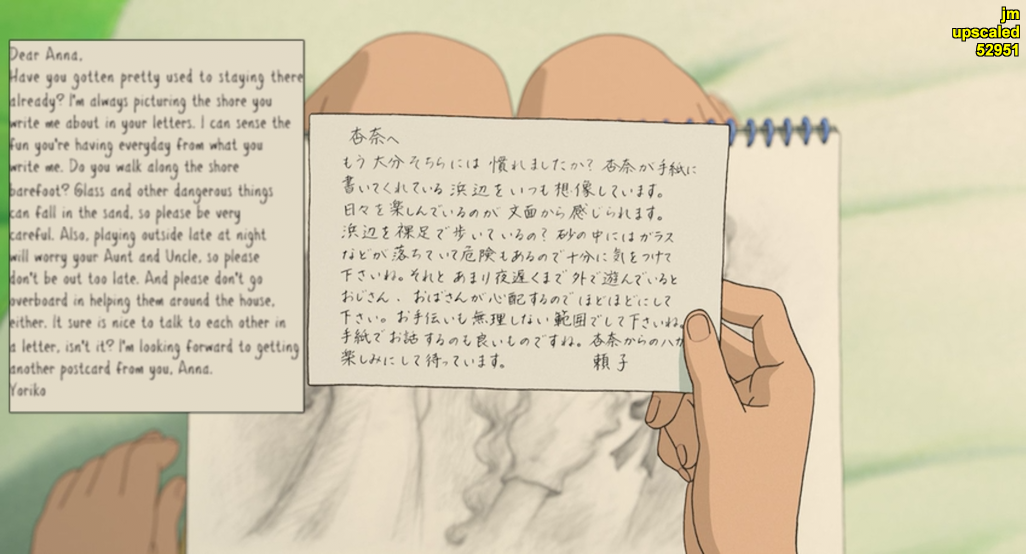 jm
upscaled
52951
Dear Anna,
Have you gotten pretty used to staying there
already? I'm always picturing the shore you
write me about in your letters. I can sense the
fun you're having everyday from what you
write me. Do you walk along the shore
barefoot? Glass and other dangerous things
can fall in the sand, so please be very
careful. Also, playing outside late at night
will worry your Aunt and Uncle, so please
don't be out too late. And please don't go
overboard in helping them around the house,
either. It sure is nice to talk to each other in
a letter, isn't it? I'm looking forward to getting
another postcard from you, Anna.
Yoriko
杏奈へ
もう大分そちらには慣れましたか? 杏奈が手紙に
書いてくれている浜辺をいつも想像しています。
日々を楽しんでいるのが文面から感じられます。
浜辺を裸足で歩いているの? 砂の中にはガラス
などが落ちていて危険もあるので十分に気をつけて
下さいね。それとあまり夜遅くまで外で遊んでいると
おじさん、おばさんが心配するのでほどほどにして
下さい。お手伝いも無理しない範囲でして下さいね。
手紙でお話するのも良いものですね。杏奈からのハガ
楽しみにして待っています。
頼子